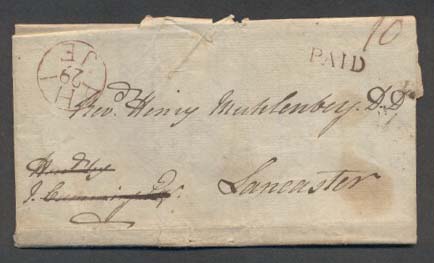 10
PAID
PHI
29
JE
Revd. Henry Muhlenberg. D.D
J. Cumming Esqr.
Lancaster